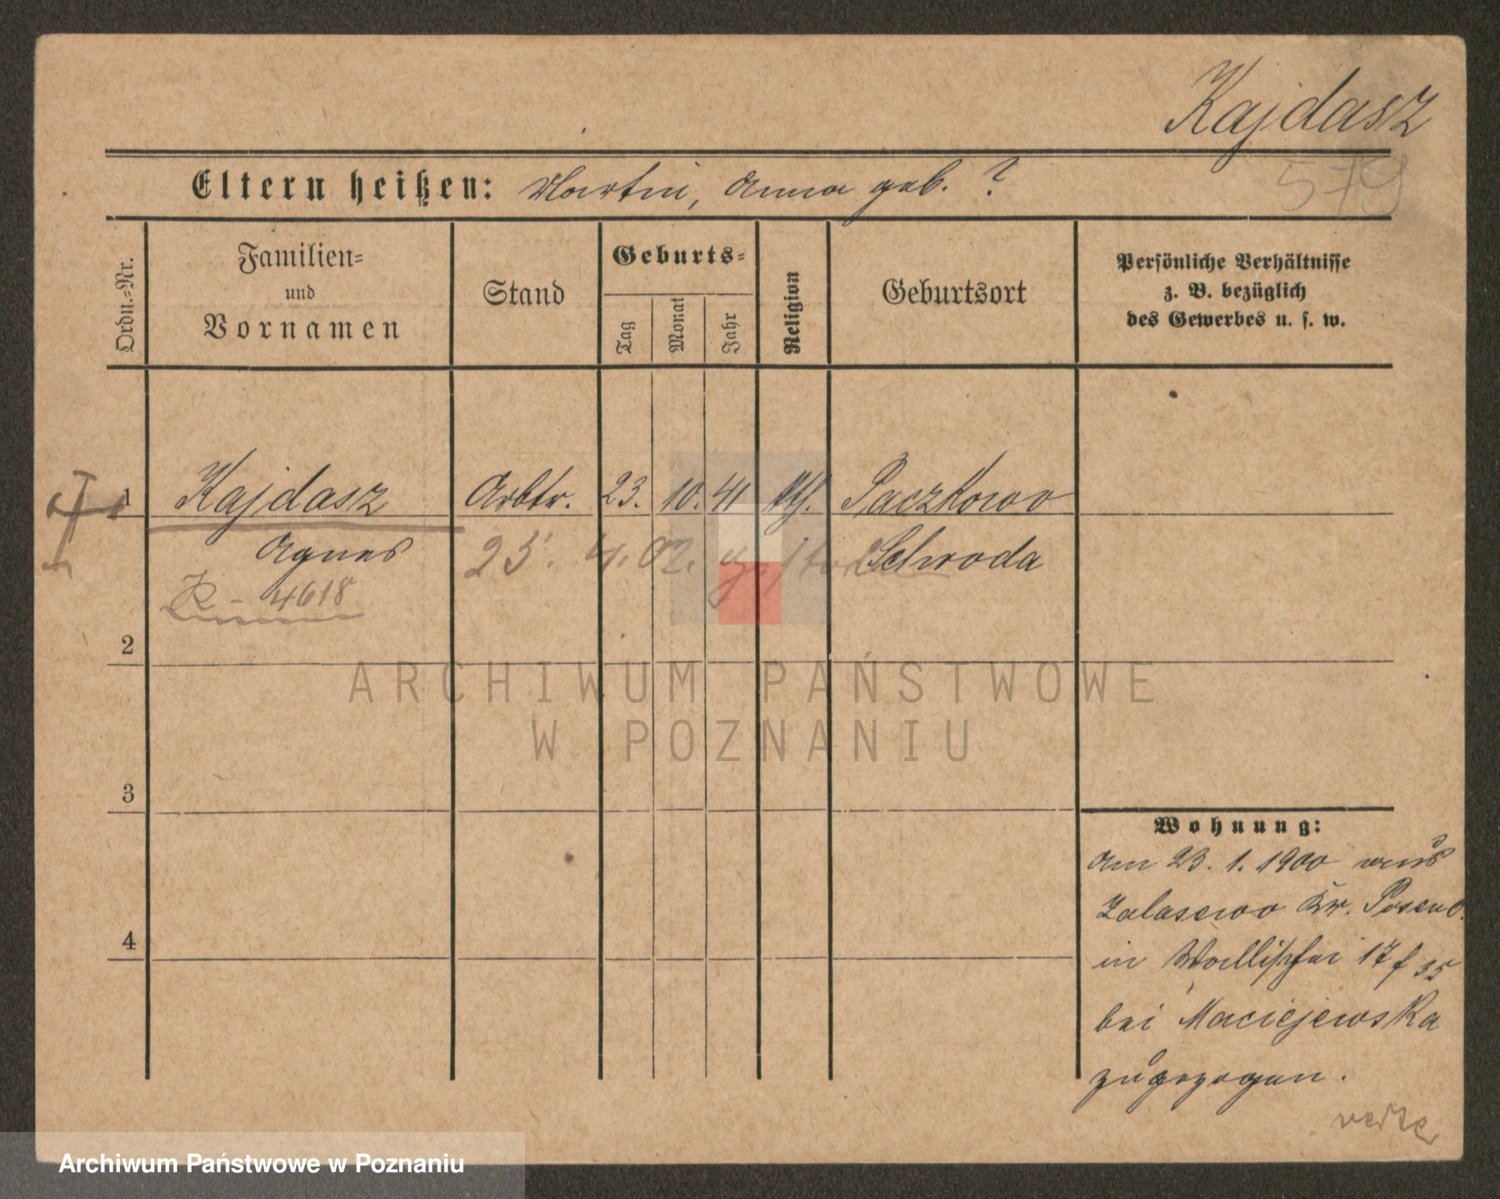 Kajdasz
579
Eltern heißen: Martin, Anna geb. ?
Ordn.=Nr.
Familien=
und
Vornamen
Stand
Geburts=
Tag
Monat
Jahr
Religion
Geburtsort
Persönliche Verhältnisse
z. B. bezüglich
des Gewerbes u. s. w.
1 Kajdasz Arbtr. 23. 10. 41 kth. Paczkowo
Agnes Schroda
25. 4. 02. gestorben
R - 4618
2
3
4
ARCHIWUM PAŃSTWOWE
W POZNANIU
Wohnung:
Am 23. 1. 1900 aus
Zalasewo Kr. Posen O.
in Wallischei 17
bei Maciejewska
zugezogen.
Archiwum Państwowe w Poznaniu